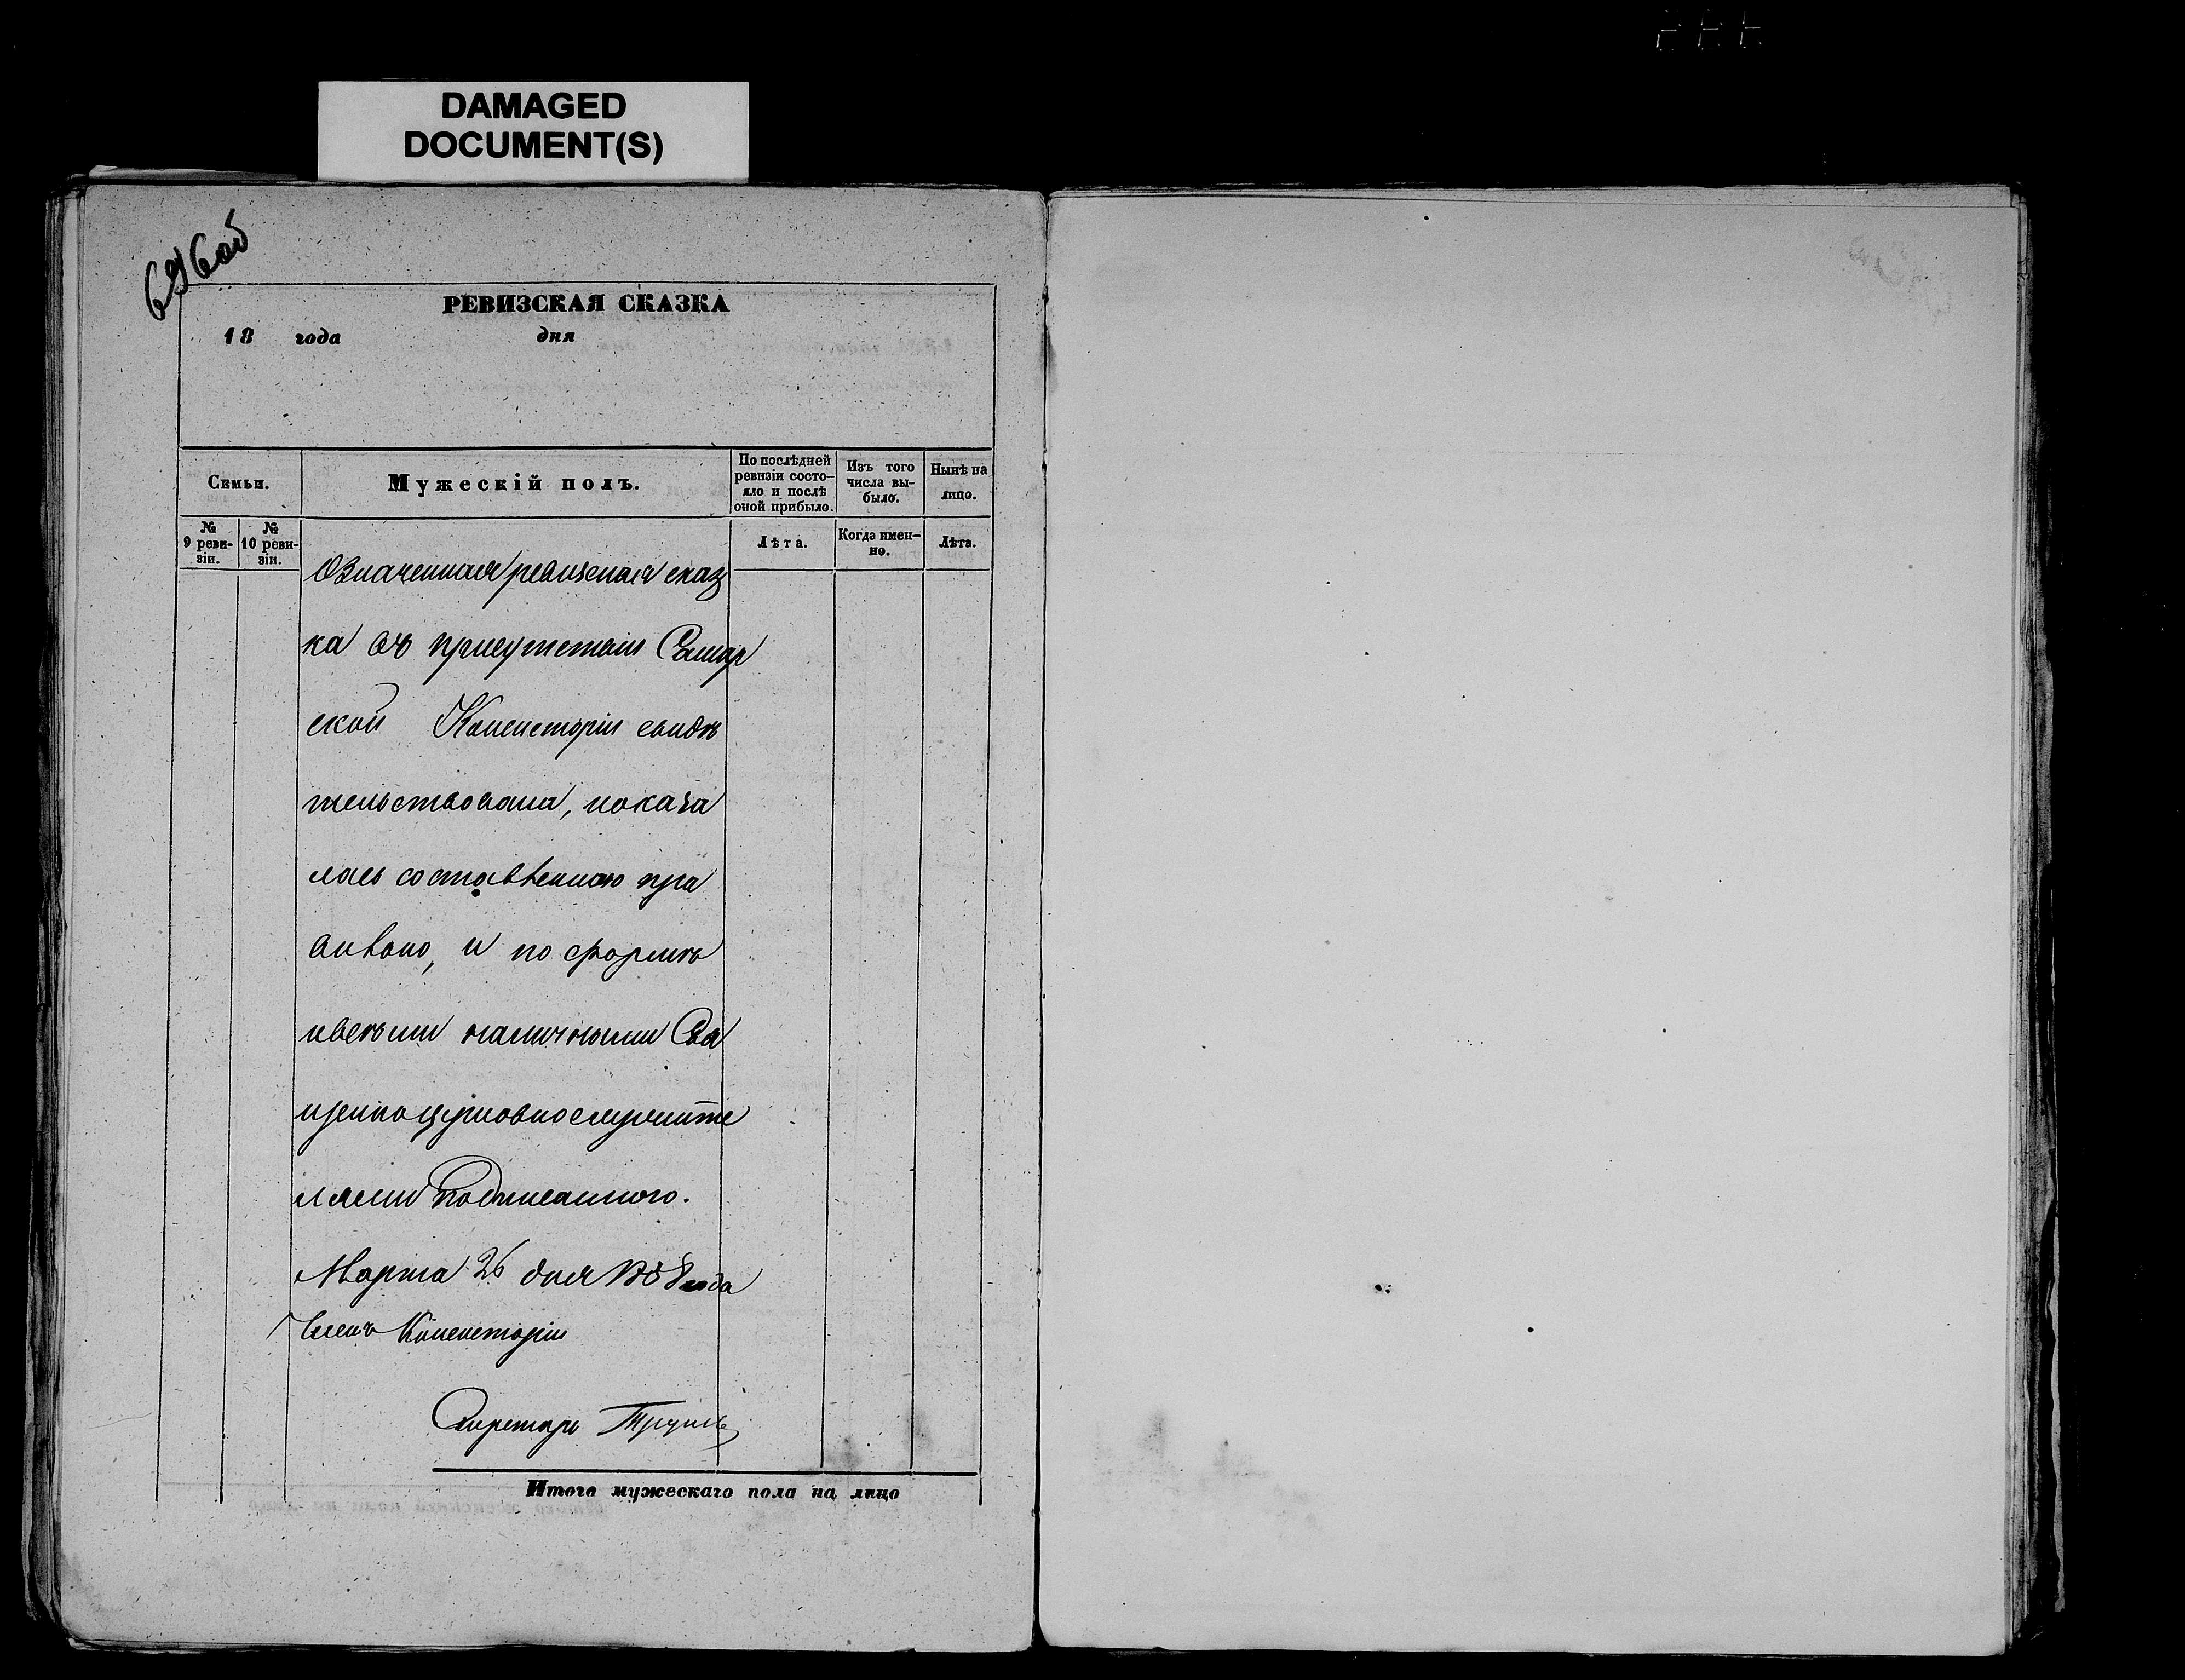 DAMAGED
DOCUMENT(S)
696об
РЕВИЗСКАЯ СКАЗКА
18 года дня
Семьи.
Мужескій полъ.
По послѣдней ревизіи состо-
яло и послѣ оной прибыло.
Изъ того числа вы-
было.
Нынѣ на лицо.
№ 9 реви-
зіи.
№ 10 реви-
зіи.
Лѣта.
Когда имен-
но.
Лѣта.
Означенная ревизская сказ
ка въ присутствіи Самар
ской Консисторіи свидѣ
тельствована, показа
лась составленною пра
вильно, и по формѣ
и всѣми наличными Свя
щенноцерковнослужите
лями подписанною.
Марта 26 дня 1858 года
Членъ Консисторіи
Секретарь
Итого мужескаго пола на лицо